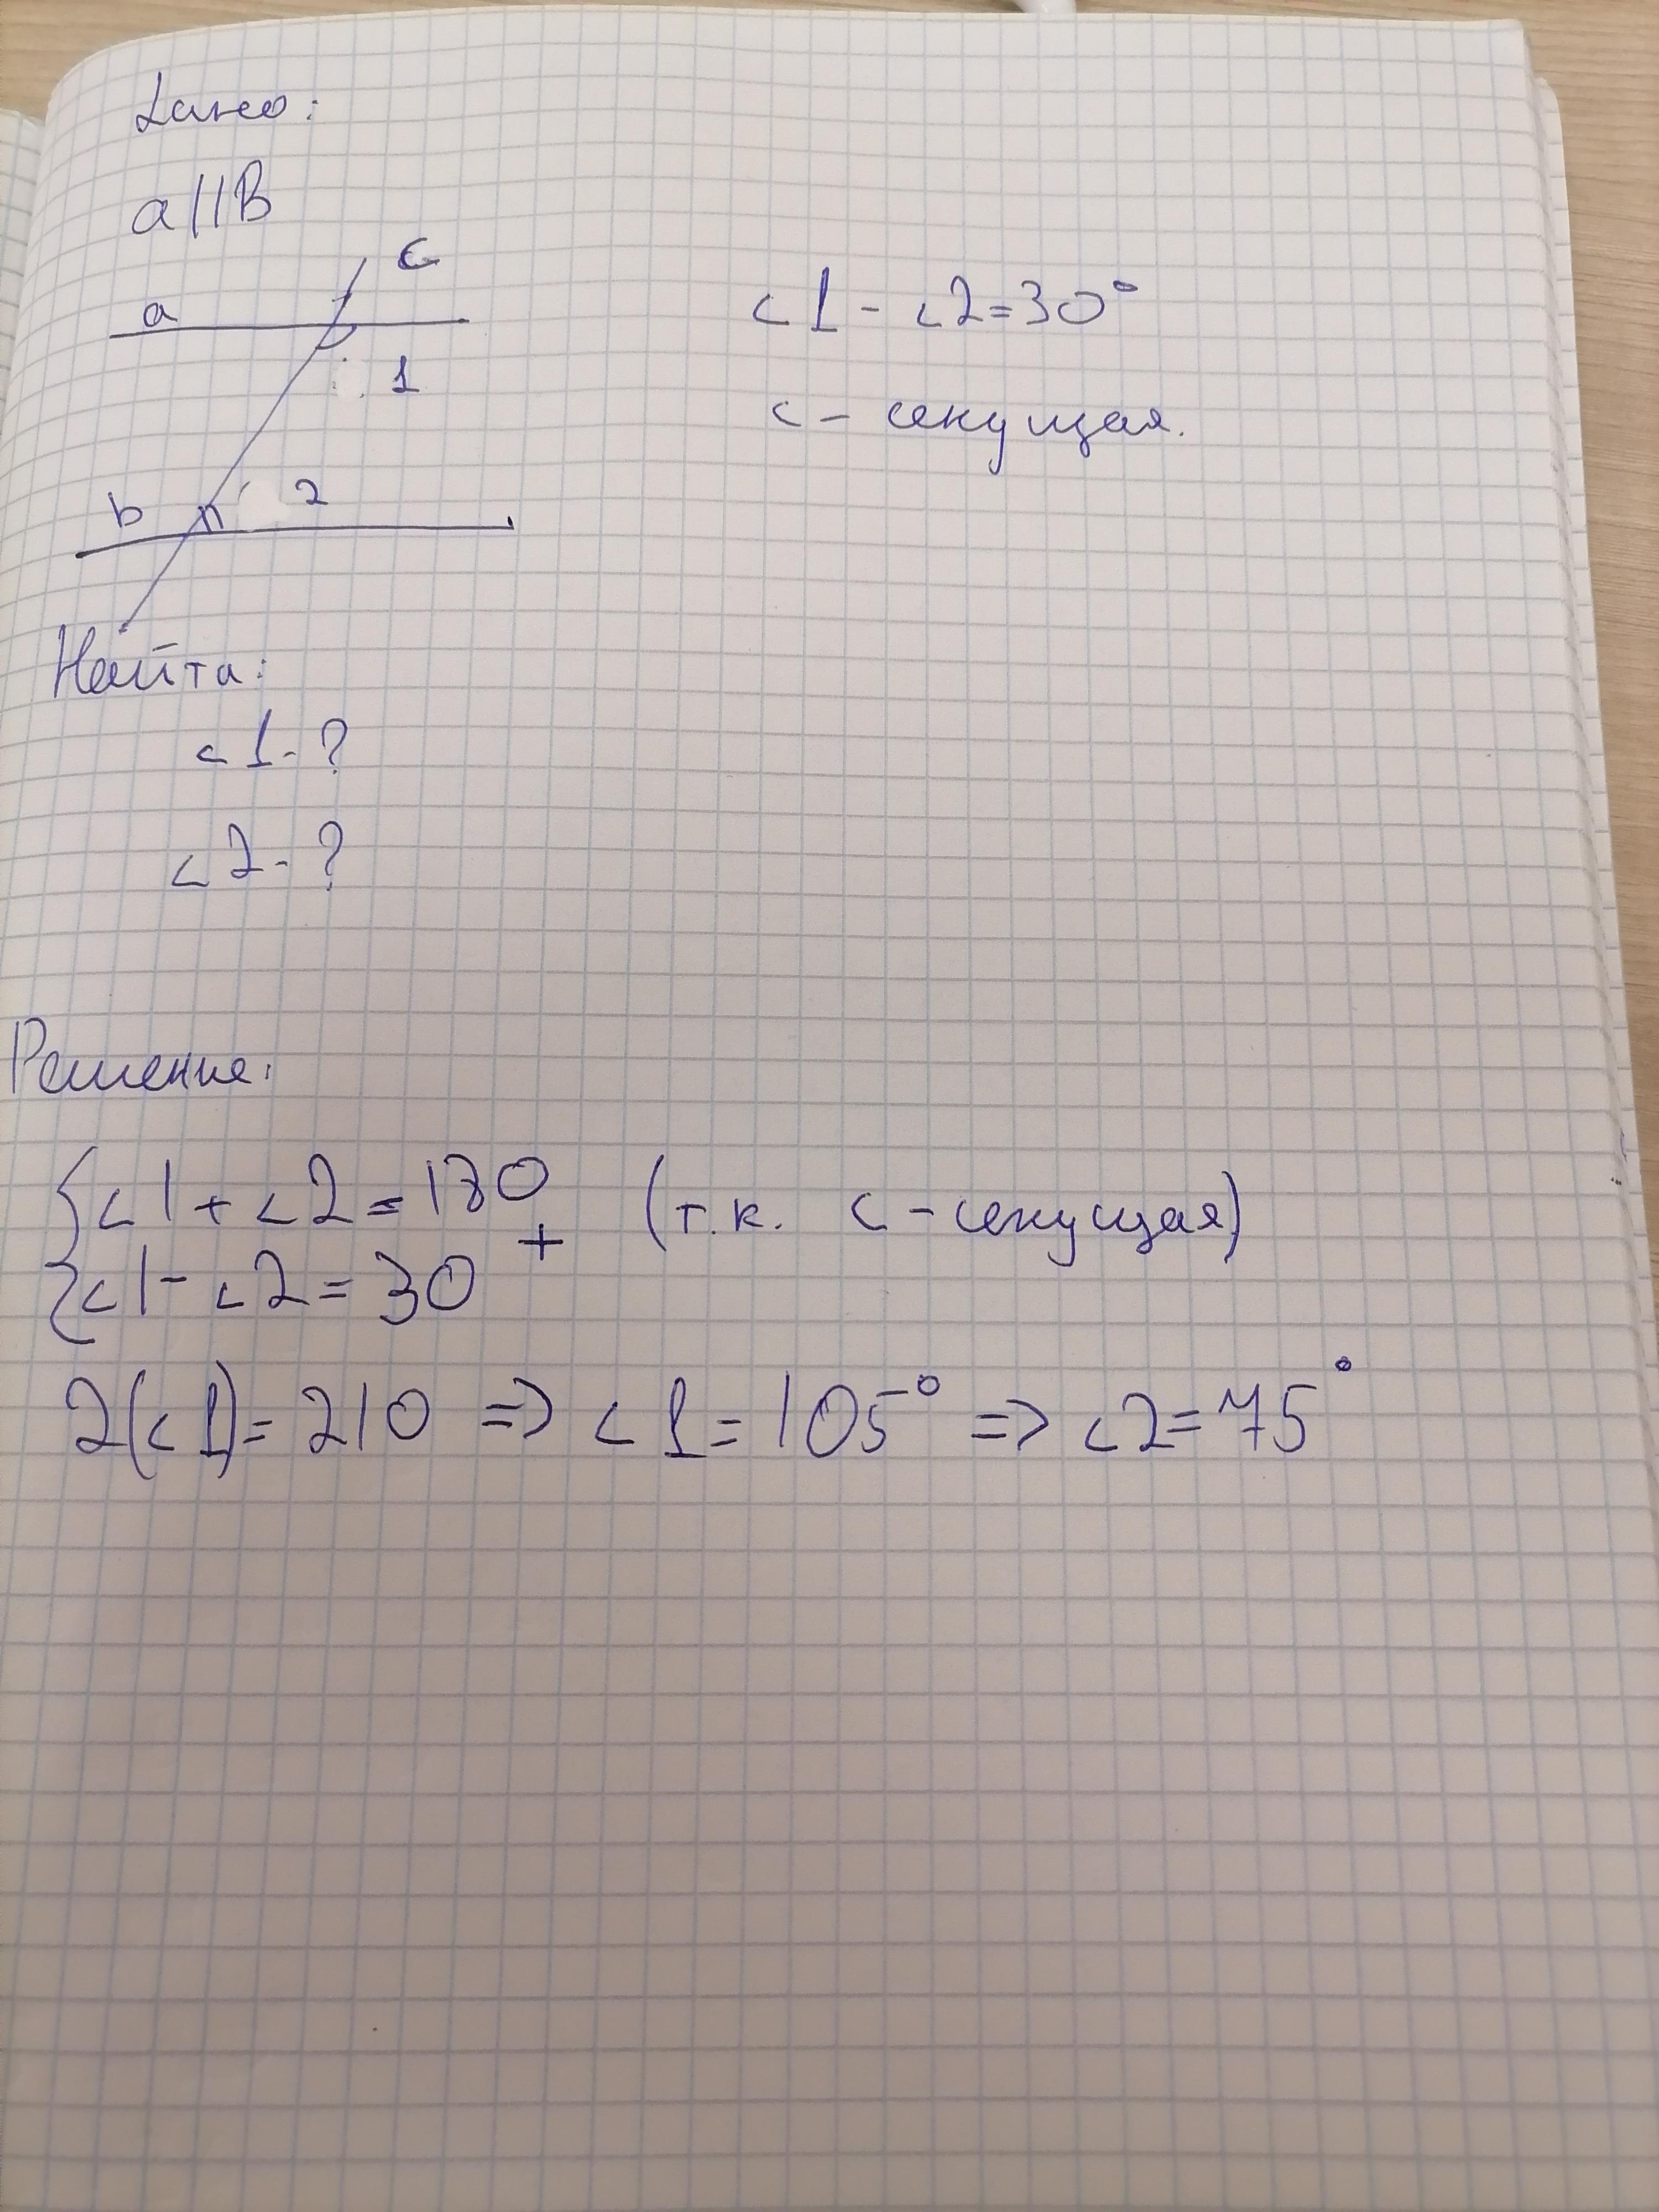 Дано:
a||B
c
a
1
b
2
<1 - <2=30°
c - секущая.
Найти:
<1-?
<2-?
Решение:
{<1+<2=180 (т.к. c-секущая)
+
<1-<2=30
2(<1)=210 => <1=105° => <2=75°